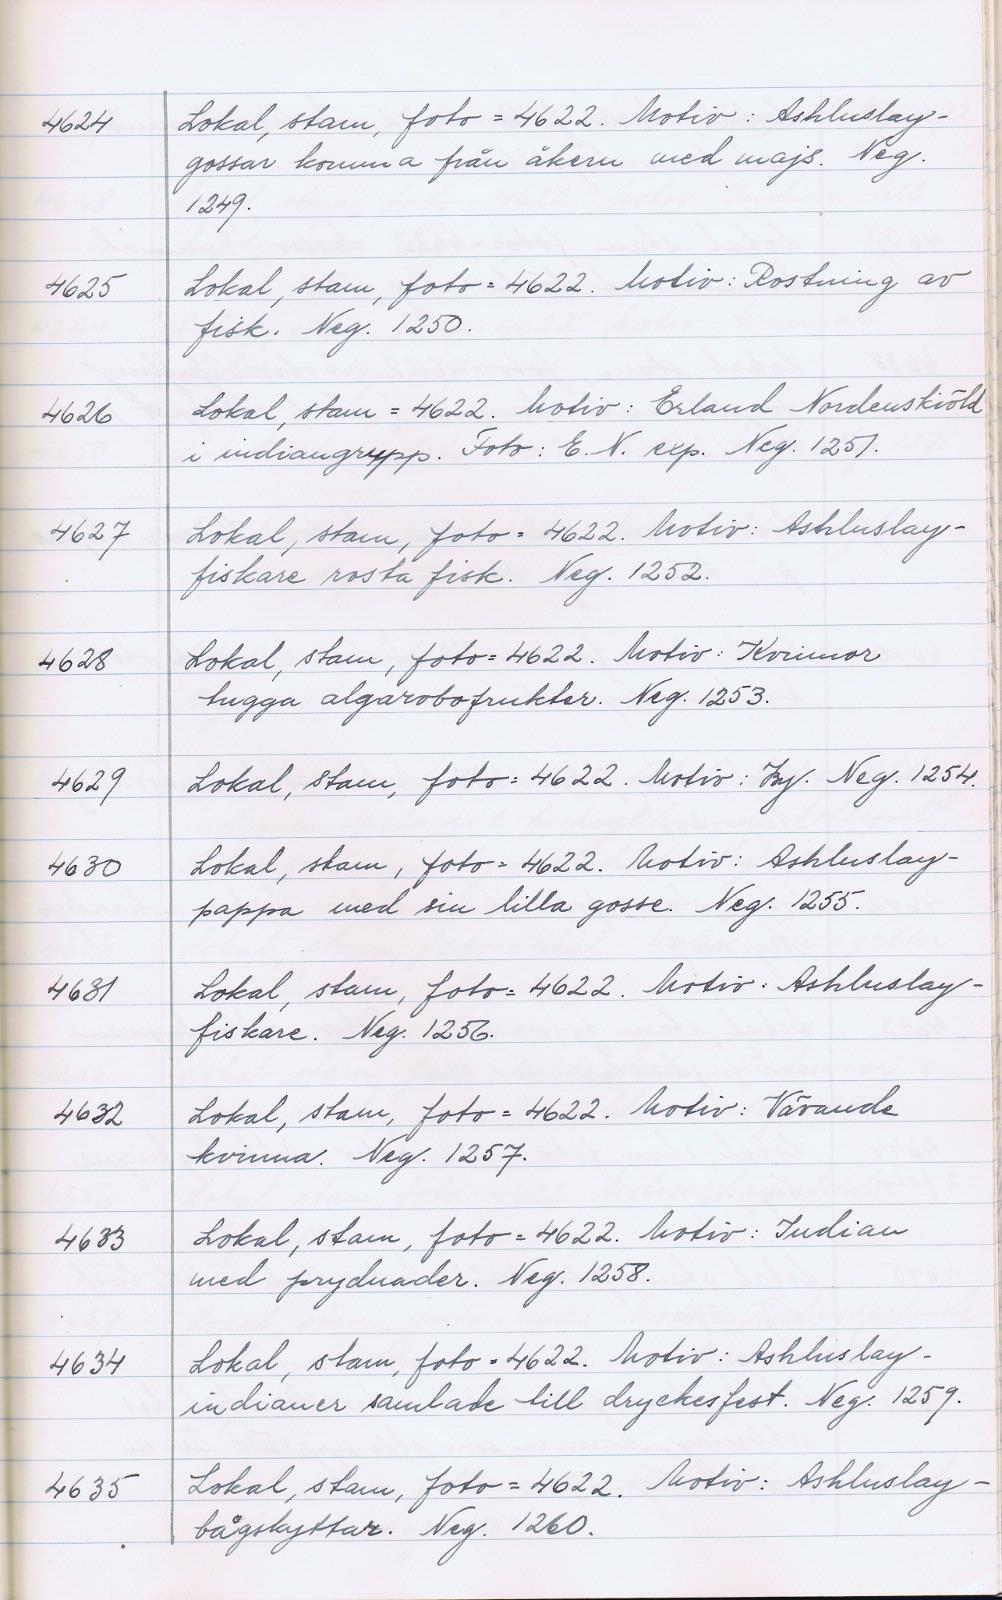 4624 Lokal, stam, foto = 4622. Motiv: Ashluslay-
gossar komma från åkern med majs. Neg.
1249.
4625 Lokal, stam, foto = 4622. Motiv: Rostning av
fisk. Neg. 1250.
4626 Lokal, stam = 4622. Motiv: Erland Nordenskiöld
i indiangrupp. Foto: E. N. exp. Neg. 1251.
4627 Lokal, stam, foto = 4622. Motiv: Ashluslay-
fiskare rosta fisk. Neg. 1252.
4628 Lokal, stam, foto = 4622. Motiv: Kvinnor
tugga algarobofrukter. Neg. 1253.
4629 Lokal, stam, foto = 4622. Motiv: By. Neg. 1254.
4630 Lokal, stam, foto = 4622. Motiv: Ashluslay-
pappa med sin lilla gosse. Neg. 1255.
4631 Lokal, stam, foto = 4622. Motiv: Ashluslay-
fiskare. Neg. 1256.
4632 Lokal, stam, foto = 4622. Motiv: Vävande
kvinna. Neg. 1257.
4633 Lokal, stam, foto = 4622. Motiv: Indian
med prydnader. Neg. 1258.
4634 Lokal, stam, foto = 4622. Motiv: Ashluslay-
indianer samlade till dryckesfest. Neg. 1259.
4635 Lokal, stam, foto = 4622. Motiv: Ashluslay-
bågskyttar. Neg. 1260.